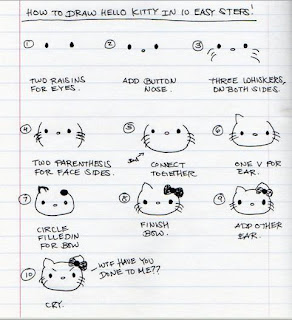 HOW TO DRAW HELLO KITTY IN 10 EASY STEPS!
1 2 3
TWO RAISINS
FOR EYES.
ADD BUTTON
NOSE.
THREE WHISKERS,
ON BOTH SIDES.
4 5 6
TWO PARENTHESIS
FOR FACE SIDES.
CONNECT
TOGETHER
ONE V FOR
EAR.
7 8 9
CIRCLE
FILLED IN
FOR BOW
FINISH
BOW.
ADD OTHER
EAR.
10
WTF HAVE YOU
DONE TO ME??
CRY.